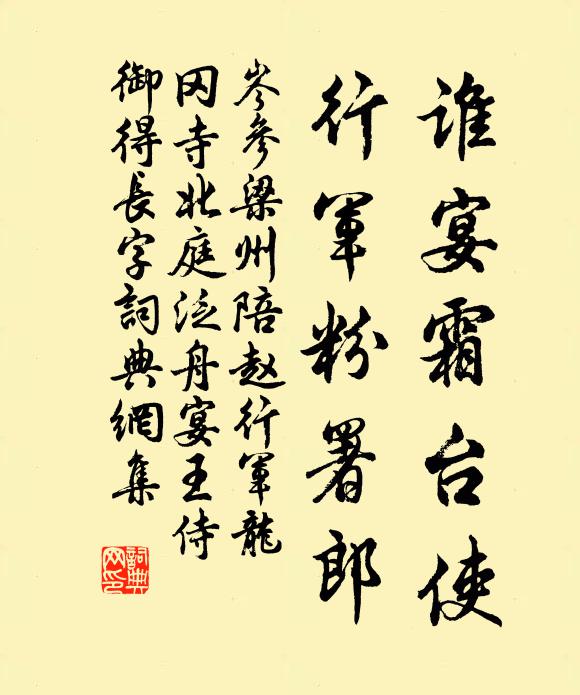 谁宴霜台使
行军粉署郎
岑参梁州陪赵行军龍
冈寺北庭泛舟宴王侍
御得長字詞典網集
詞典
网印